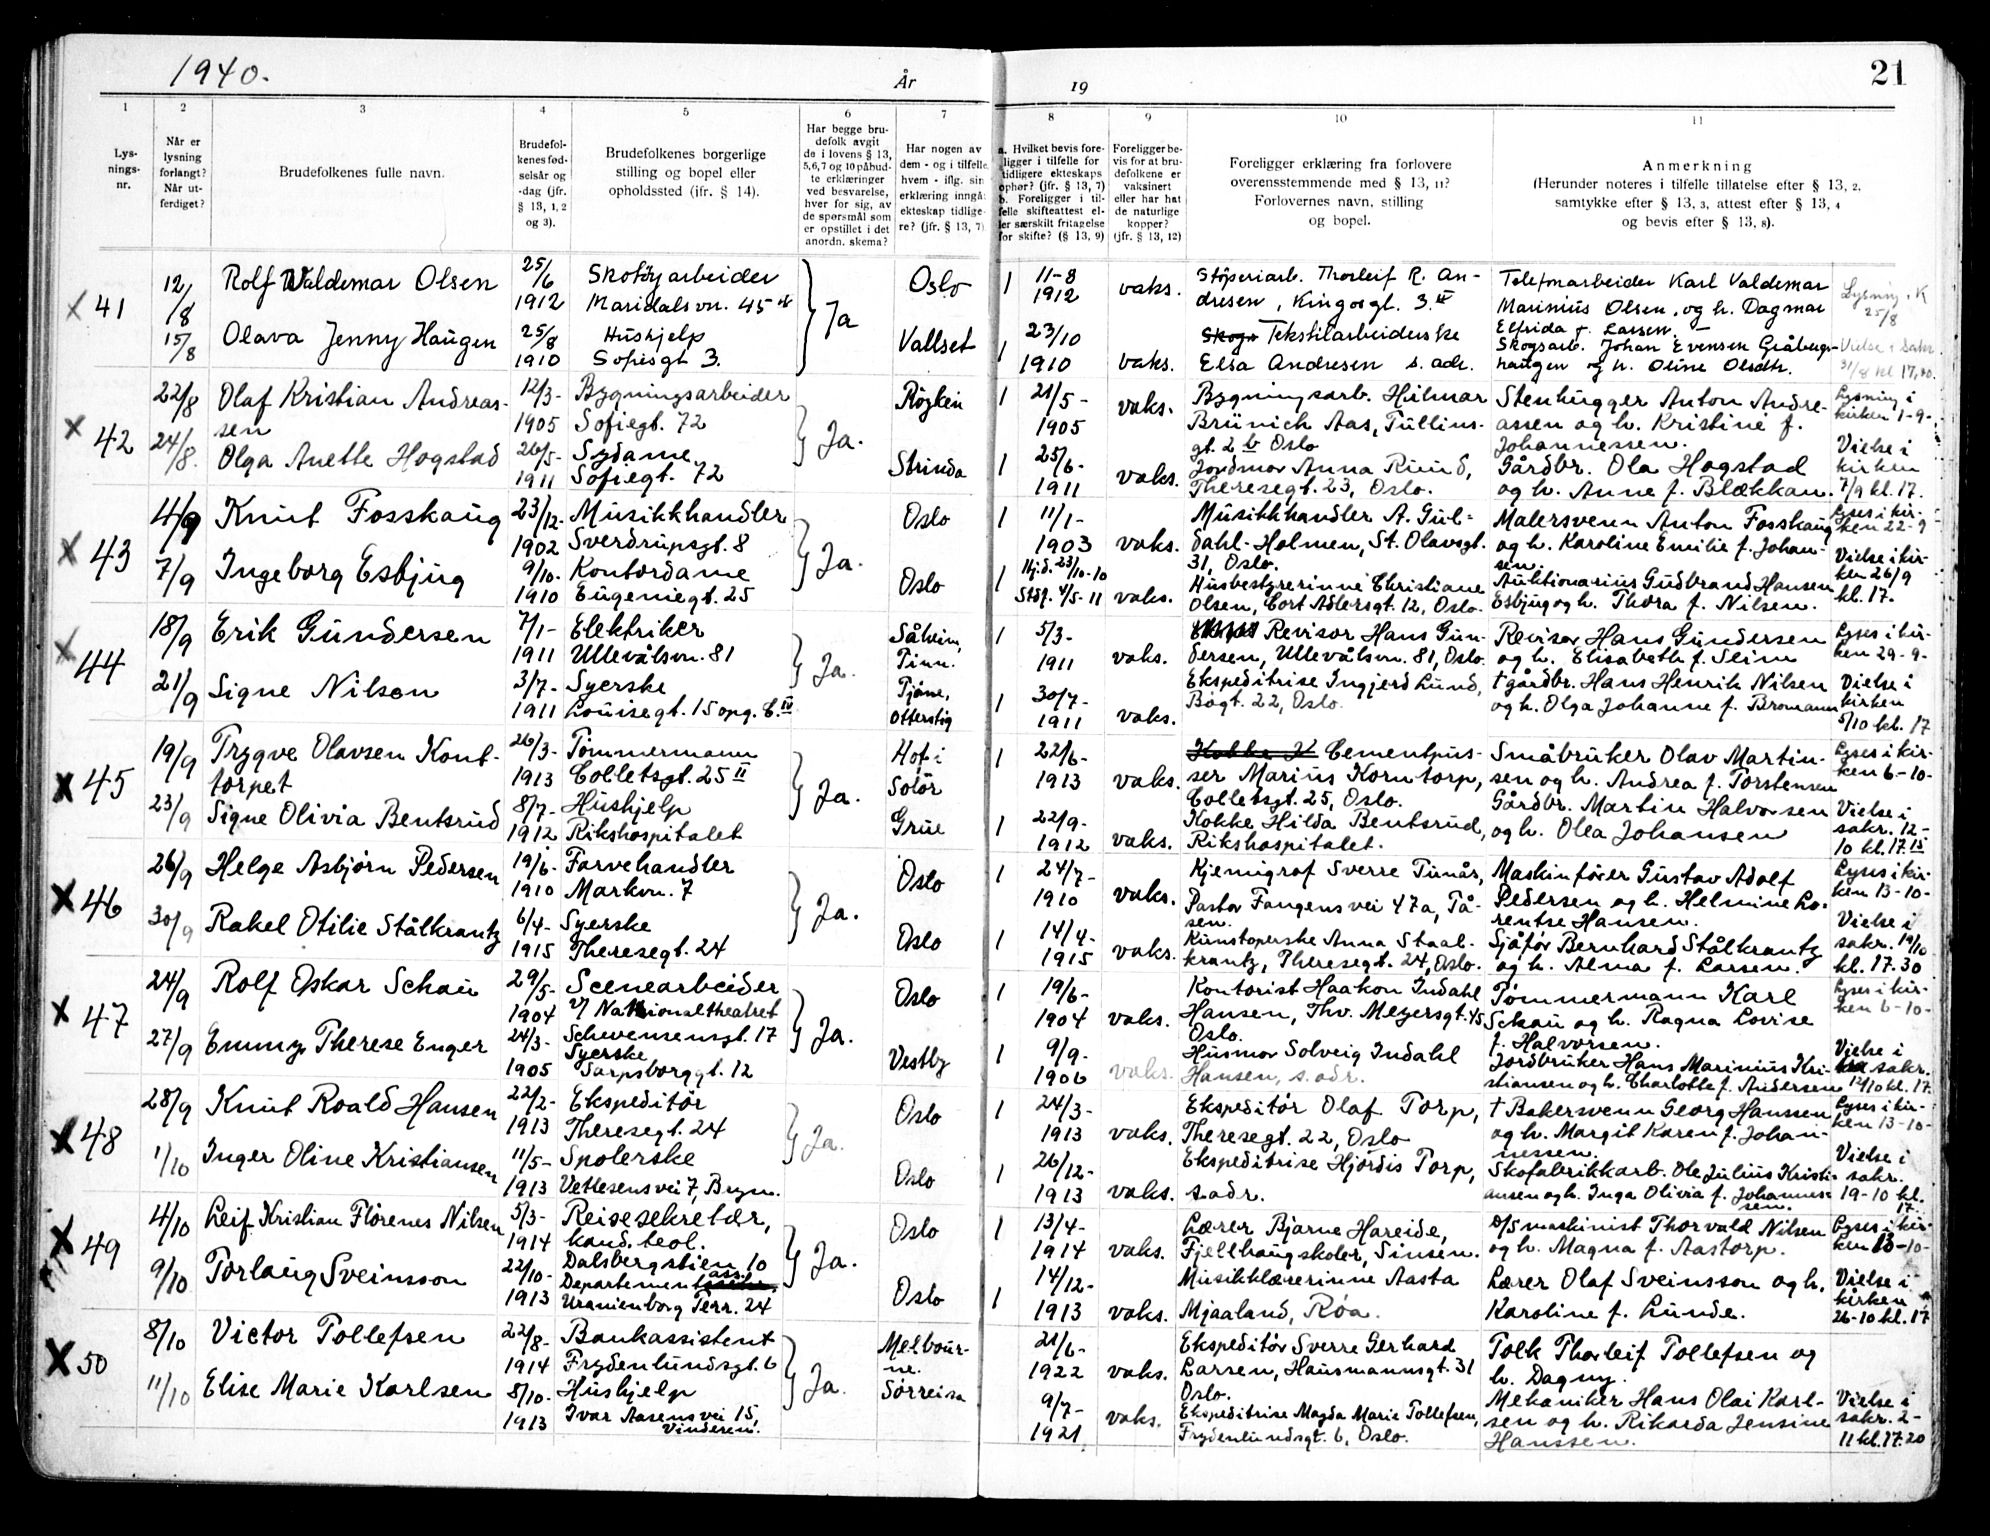 1940.
År
19
21
1
2
3
4
5
6
7
8
9
10
11
Lys-
nings-
nr.
Når er
lysning
forlangt?
Når ut-
ferdiget?
Brudefolkenes fulle navn.
Brudefol-
kenes fød-
selsår og
-dag (jfr.
§ 13, 1, 2
og 3).
Brudefolkenes borgerlige
stilling og bopel eller
opholdssted (ifr. § 14).
Har begge bru-
defolk avgit
de i lovens § 13,
5, 6, 7 og 10 påbud-
te erklæringer
ved besvarelse,
hver for sig, av
de spørsmål som
er opstillet i det
anordn. skema?
Har nogen av
dem - og i tilfelle
hvem - iflg. sin
erklæring inngå
ekteskap tidlige-
re? (jfr. § 13, 7)
a. Hvilket bevis fore-
ligger i tilfelle for
tidligere ekteskaps
ophør? (jfr. § 13, 7)
b. Foreligger i til-
felle skifteattest el-
ler særskilt fritagelse
for skifte? (§ 13, 9)
Foreligger be-
vis for at bru-
defolkene er
vaksinert
eller har hat
de naturlige
kopper?
(jfr. § 13, 12)
Foreligger erklæring fra forlovere
overensstemmende med § 13, 11?
Forlovernes navn, stilling
og bopel.
Anmerkning
(Herunder noteres i tilfelle tillatelse efter § 13, 2,
samtykke efter § 13, 3, attest efter § 13, 4
og bevis efter § 13, 8).
x 41
12/8
15/8
Rolf Valdemar Olsen
25/6
1912
Skotøyarbeider
Maridalsvn. 45
Ja
Oslo
1 11-8
1912
vaks.
Støperiarb. Thorleif R. An-
dresen, Kingosgt. 3.
Telefonarbeider Karl Valdemar
Marinius Olsen, og h. Dagmar
Elfrida f. Larsen.
Lysning i K
25/8
Olava Jenny Haugen
25/8
1910
Hushjelp
Sofiesgt 3.
Vallset
1 23/10
1910
vaks.
Skogs Tekstilarbeiderske
Elsa Andresen s. adr.
Skogsarb. Johan Evensen Gråbergs-
haugen og h. Oline Olsdtr.
Vielse i sakr.
31/8 kl 17,40.
x 42
22/8
24/8.
Olaf Kristian Andreas-
sen
12/3-
1905
Bygningsarbeider
Sofiegt. 72
Ja.
Røyken
1 21/5-
1905
vaks.
Bygningsarb. Hilmar
Brünich Aas, Tüllins-
gt. 2 b Oslo
Stenhugger Anton Andre-
assen og h. Kristine f.
Johannessen.
Lysning i
kirken 1-9-
Olga Anette Hogstad
26/5-
1911
Sydame
Sofiegt. 72
Strinda
1 25/6-
1911
vaks.
Jordmor Anna Ruud,
Theresegt. 23, Oslo.
Gårdbr. Ola Hogstad
og h. Anne f. Blækkan.
Vielse i
kirken
7/9 kl. 17.
x 43
4/9
7/9
Knut Fosskaug
23/12-
1902
Musikkhandler
Sverdrupsgt. 8
Ja.
Oslo
1 11/1-
1903
vaks.
Musikkhandler A. Gul-
dahl-Holmen, St. Olavsgt.
31, Oslo.
Malersvenn Anton Fosskaug
og h. Karoline Emilie f. Johan-
sen.
Lyses i kir-
ken 22-9
Ingeborg Esbjug
9/10-
1910
Kontordame
Eugeniegt. 25
Oslo
1 23/10-10
4/5-11
vaks.
Husbestyrerinne Christiane
Olsen, Cort Adlersgt. 12, Oslo.
Auktionarius Gudbrand Hansen
Esbjug og h. Thora f. Nilsen.
Vielse i kir-
ken 26/9
kl. 17.
x 44
18/9
21/9
Erik Gundersen
7/1-
1911
Elektriker
Ullevålsvn. 81
Ja.
Såheim,
Tinn.
1 5/3-
1911
vaks.
Revisor Hans Gun-
dersen, Ullevålsvn. 81, Oslo.
Revisor Hans Gundersen
og h. Elisabeth f. Seim
Lyses i kir-
ken 29-9-
Signe Nilsen
3/7-
1911
Syerske
Louisegt. 15 opg. C. IV
Tjåne,
Otterstig
1 30/7-
1911
vaks.
Ekspeditrise Ingjerd Lund,
Bogt. 22, Oslo.
† gårdbr. Hans Henrik Nilsen
og h. Olga Johanne f. Bromann
Vielse i
kirken
5/10 kl. 17
x 45
19/9
23/9
Trygve Olavsen Kont-
torpet
26/3-
1913
Tømmermann
Colletsgt. 25 II
Ja.
Hof i
Solør
1 22/6-
1913
vaks.
Kokke Cementpus-
ser Marius Korntorp,
Colletsgt. 25, Oslo.
Småbruker Olav Martin-
sen og h. Andrea f. Torstensen
Lyses i kir-
ken 6-10-
Signe Olivia Bentsrud
8/7-
1912
Hushjelp
Rikshospitalet
Grue
1 22/9-
1912
vaks.
Kokke Hilda Bentsrud,
Rikshospitalet.
Gårdbr. Martin Halvorsen
og h. Olea Johansen
Vielse i
sakr. 12-
10 kl. 17.15
x 46
26/9
30/9
Helge Asbjørn Pedersen
19/6-
1910
Farvehandler
Markvn. 7
Ja.
Oslo
1 24/7-
1910
vaks.
Kjemigraf Sverre Tunår,
Pastor Fangens vei 47a, Tå-
sen.
Maskinfører Gustav Adolf
Pedersen og h. Helmine Lo-
rentse Hansen.
Lyses i kir-
ken 13-10-
Rakel Otilie Stålkrantz
6/4-
1915
Syerske
Theresegt. 24
Oslo
1 14/4-
1915
vaks.
Kunstoperske Anna Staal-
krantz, Theresegt. 24, Oslo.
Sjåfør Bernhard Stålkrantz
og h. Alma f. Larsen.
Vielse i
sakr. 19/10
kl. 17.30
x 47
24/9
27/9
Rolf Oskar Schau
29/5-
1904
Scenearbeider
v/ Nationaltheatret
Schwensensgt. 17
Ja.
Oslo
1 19/6-
1904
vaks.
Kontorist Haakon Indahl
Hansen, Thv. Meyersgt. 45
Oslo.
Tømmermann Karl
Schau og h. Ragna Lovise
f. Halvorsen.
Lyses i kir-
ken 6-10-
Emmy Therese Enger
24/3-
1905
Syerske
Sarpsborggt. 12
Vestby
1 9/9-
1906
vaks.
Husmor Solveig Indahl
Hansen, s. adr.
Jordbruker Hans Marinius Kri-
stiansen og h. Charlotte f. Andersen
Vielse i
sakr.
12/10 kl. 17.
x 48
28/9
1/10
Knut Roald Hansen
22/2-
1913
Ekspeditør
Theresegt. 24
Ja.
Oslo
1 24/3-
1913
vaks.
Ekspeditør Olaf Torp,
Theresegt. 22, Oslo
† Bakersvenn Georg Hanssen
og h. Margit Karen f. Johan-
nessen.
Lyses i kir-
ken 13-10-
Inger Oline Kristiansen
11/5-
1913
Spolerske
Vetlesens vei 7, Bryn.
Oslo
1 26/12-
1913
vaks.
Ekspeditrise Hjørdis Torp,
s. adr.
Skofabrikkarb. Ole Julius Kristi-
ansen og h. Inga Olivia f. Johannes-
sen.
Vielse i
sakr.
19-10 kl.
17.
x 49
4/10
9/10
Leif Kristian Flørenes Nilsen
5/3-
1914
Reisesekretær,
kand. teol.
Dalsbergstien 10
Ja.
Oslo
1 13/4-
1914
vaks.
Lærer Bjarne Hareide,
Fjellhaug skoler, Sinsen.
D/S maskinist Thorvald Nilsen
og h. Magna f. Aastorp.
Lyses i kir-
ken 13-10-
Torlaug Sveinsson
22/10-
1913
Departementsass.
Uranienborg Terr. 24
Oslo
1 14/12-
1913
vaks.
Musikklærerinne Aasta
Mjaaland, Røa.
Lærer Olaf Sveinsson og h.
Karoline f. Lunde.
Vielse i
kirken
26-10 kl. 17
x 50
8/10
11/10
Victor Tollefsen
22/8-
1914
Bankassistent
Frydenlundsgt. 6
Ja.
Melbour-
ne.
21/6-
1922
vaks.
Ekspeditør Sverre Gerhard
Larsen, Hausmannsgt. 31
Oslo.
Tolk Thorleif Tollefsen og
h. Dagny.
Elise Marie Karlsen
8/10-
1913
Hushjelp
Ivar Aasens vei 15,
Vinderen.
Sørreisa
9/7-
1921
vaks.
Ekspeditrise Magda Marie Tollefsen,
Frydenlundsgt. 6, Oslo.
Mekaniker Hans Olai Karl-
sen og h. Rikarda Jensine
Hanssen.
Vielse i
sakr. 2-
11 kl. 17.20